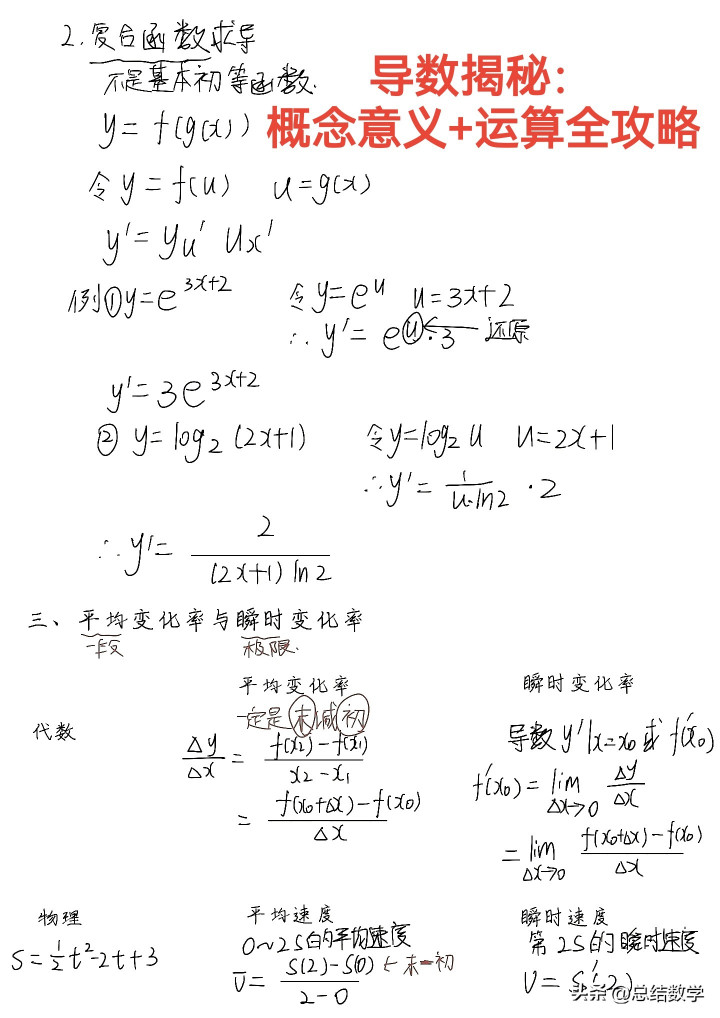 2.复合函数求导
不是基本初等函数.
导数揭秘:
概念意义+运算全攻略
y=f(g(x))
令y=f(u) u=g(x)
y'=yu' ux'
例①y=e^{3x+2} 令y=e^u u=3x+2
∴y'=e^u·3 ← 还原
y'=3e^{3x+2}
② y=log₂(2x+1) 令y=log₂u u=2x+1
∴y'=1/(u·ln2)·2
∴y'=2/((2x+1)ln2)
三、平均变化率与瞬时变化率
一段 极限.
平均变化率 瞬时变化率
一定是末减初
代数
Δy/Δx=(f(x₂)-f(x₁))/(x₂-x₁) 导数y'|x=x₀或f'(x₀)
=(f(x₀+Δx)-f(x₀))/Δx f'(x₀)=lim Δx→0 Δy/Δx
=lim Δx→0 (f(x₀+Δx)-f(x₀))/Δx
物理 平均速度 瞬时速度
0~2s的平均速度 第2s的瞬时速度
S=½t²-2t+3 v̄=(S(2)-S(0))/(2-0) ← 末-初 V=S'(2)
头条@总结数学